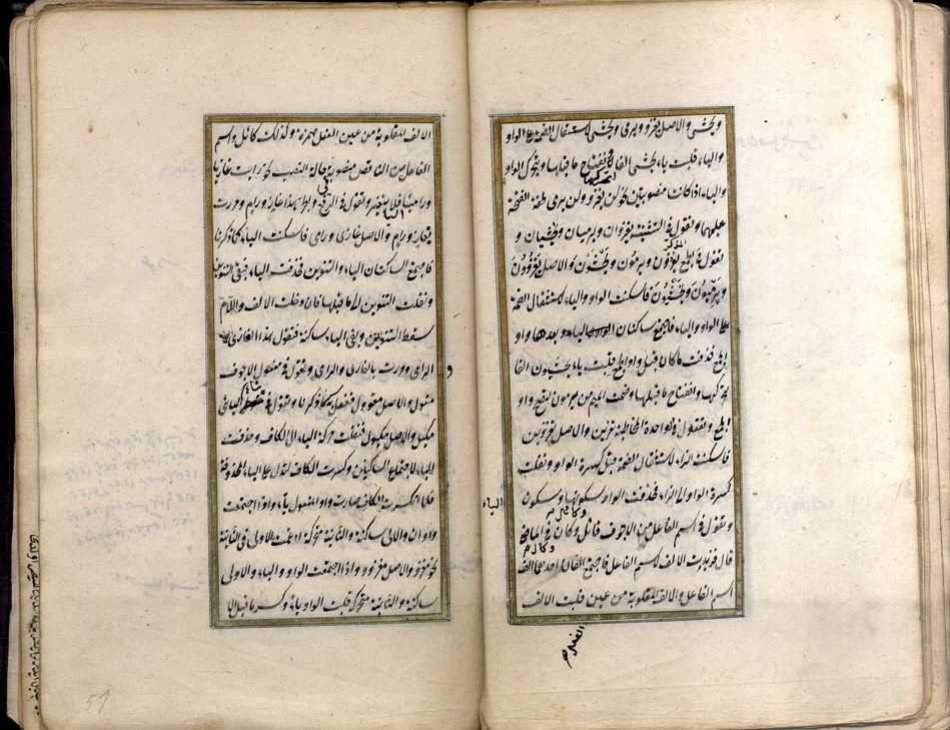 ويخشى والاصل يغزو ويرمى ويخشى لاستثقال الضمة على الواو
والياء قلبت ياء يخشى الفا لتحركها وانفتاح ما قبلها وتحرك الواو
والياء اذا كانت منصوبتين نحو لن يغزو ولن يرمى خفة الفتحة
عليهما وتقول فى التثنية يغزوان ويرميان ويخشيان و
تقول فى الجمع المذكر يغزون ويرمون ويخشون والاصل يغزوون
ويرميون ويخشيون فاسكنت الواو والياء لاستثقال الضمة
على الواو والياء فاجتمع ساكنان الواو والياء وبعدها واو
الجمع فحذفت ما كان قبل واو الجمع وقلبت ياء يخشيون الفا
لتحركها وانفتاح ما قبلها وضمت الميم من يرمون لتصح واو
الجمع وتقول فى الواحدة المخاطبة تغزين والاصل تغزوين
فاسكنت الزاء لاستثقال الضمة قبل كسرة الواو ونقلت
كسرة الواو الى الزاء فحذفت الواو لسكونها وسكون
الياء
وتقول فى اسم الفاعل من الاجوف قائل وكان فى الماضى
قال فزيدت الالف لاسم الفاعل فاجتمع الفان احدهما الف
اسم الفاعل والالف المقلوبة من عين قلبت الالف
الالف المقلوبة من عين الفعل همزة وكذلك كائل واسم
الفاعل من الناقص منصوب فى حالة النصب نحو رايت غازيا
وراميا فلا يتغير وتقول فى الرفع والجر هذا غاز ورام ومررت
بغاز ورام والاصل غازى ورامى فاسكنت الياء كما ذكرنا
فاجتمع الساكنان الياء والتنوين فحذفت الياء فبقى التنوين
ونقلت التنوين الى ما قبلها فان دخلت الالف واللام
سقط التنوين وبقى الياء ساكنة فتقول هذا الغازى
الرامى ومررت بالغازى والرامى وتقول فى مفعول الاجوف
مقول والاصل مقوول ففعل به كما ذكرنا وتقول فى
مكيل والاصل مكيول فنقلت حركة الياء الى الكاف وحذفت
الياء لاجتماع الساكنين وكسرت الكاف لتدل على الياء المحذوفة
فلما انكسرت الكاف صارت واو المفعول ياء واذا اجتمعت
واوان والاولى ساكنة والثانية متحركة ادغمت الاولى فى الثانية
نحو مغزو والاصل مغزوو واذا اجتمعت الواو والياء والاولى
ساكنة والثانية متحركة قلبت الواو ياء وكسر ما قبل الا
57